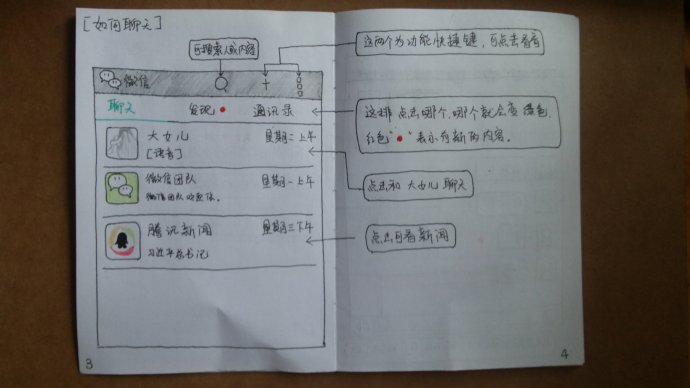 [如何聊天]
可搜索人或内容
这两个为功能快捷键，可点击看看
微信
+
聊天
发现
通讯录
这排点击哪个，哪个就会变绿色，
红色“ ”表示有新的内容。
大女儿
星期二上午
[语音]
点击和大女儿聊天
微信团队
星期一上午
微信团队欢迎你。
腾讯新闻
星期三下午
点击可看新闻
习近平总书记
3
4